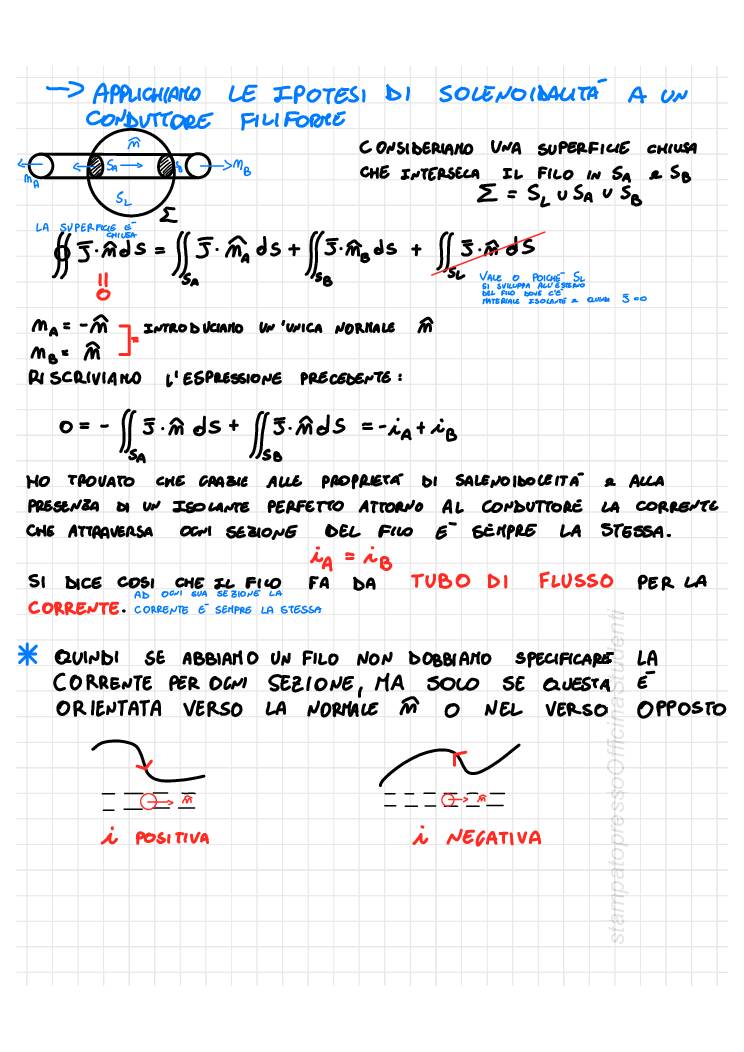 → APPLICHIAMO LE IPOTESI DI SOLENOIDALITÀ A UN
CONDUTTORE FILIFORME
n̂
S_A
n_A
n_B
S_L
Σ
CONSIDERIAMO UNA SUPERFICIE CHIUSA
CHE INTERSECA IL FILO IN S_A e S_B
Σ = S_L ∪ S_A ∪ S_B
LA SUPERFICIE È
CHIUSA
∯ J̄·n̂ dS = ∬_{S_A} J̄·n̂_A dS + ∬_{S_B} J̄·n̂_B dS + ∬_{S_L} J̄·n̂ dS
= 0
VALE 0 POICHÈ S_L
SI SVILUPPA ALL'ESTERNO
DEL FILO DOVE C'È
MATERIALE ISOLANTE e QUINDI J̄=0
n_A = -n̂
n_B = n̂
= INTRODUCIAMO UN'UNICA NORMALE n̂
RISCRIVIAMO L'ESPRESSIONE PRECEDENTE:
0 = - ∬_{S_A} J̄·n̂ dS + ∬_{S_B} J̄·n̂ dS = -i_A + i_B
HO TROVATO CHE GRAZIE ALLE PROPRIETÀ DI SALENOIDOLEITÀ e ALLA
PRESENZA DI UN ISOLANTE PERFETTO ATTORNO AL CONDUTTORE LA CORRENTE
CHE ATTRAVERSA OGNI SEZIONE DEL FILO È SEMPRE LA STESSA.
i_A = i_B
SI DICE COSI CHE IL FILO FA DA TUBO DI FLUSSO PER LA
CORRENTE. AD OGNI SUA SEZIONE LA
CORRENTE È SEMPRE LA STESSA
* QUINDI SE ABBIAMO UN FILO NON DOBBIAMO SPECIFICARE LA
CORRENTE PER OGNI SEZIONE, MA SOLO SE QUESTA È
ORIENTATA VERSO LA NORMALE n̂ O NEL VERSO OPPOSTO
n̂
n̂
i POSITIVA
i NEGATIVA
stampatopressoOfficinaStudenti